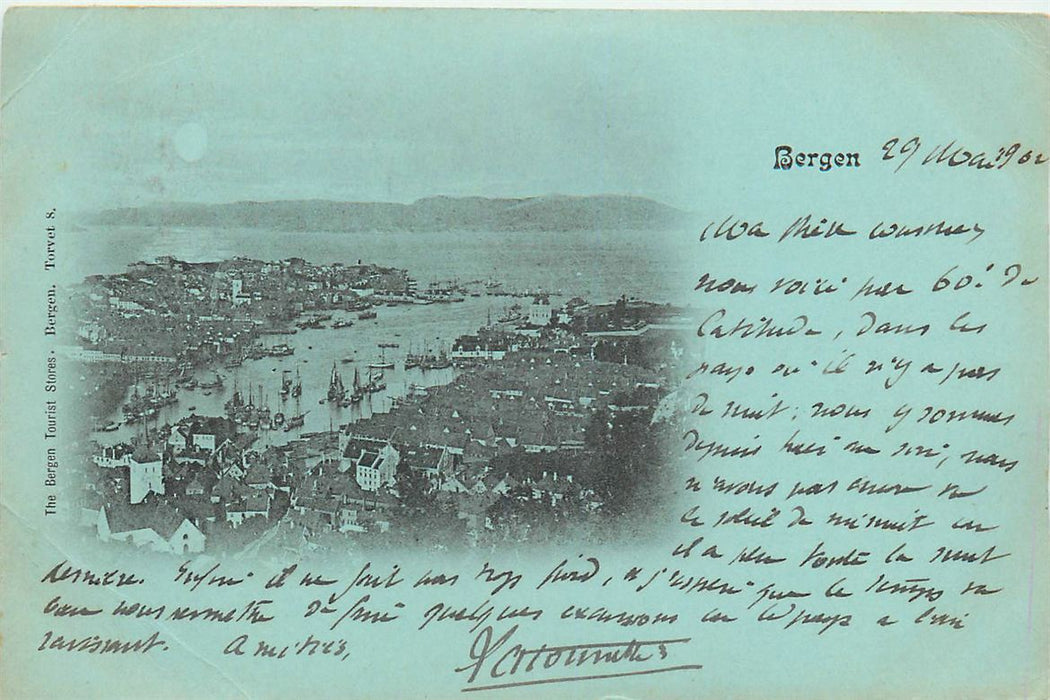 The Bergen Tourist Stores. Bergen. Torvet 8.
Bergen 29 Mai 1902
Ma chère cousine,
nous voici par 60° de
latitude, dans les
pays où il n'y a pas
de nuit; nous y sommes
depuis hier au soir, mais
n'avons pas encore vu
le soleil de minuit car
il a plu toute la nuit
dernière. Enfin il ne fait pas trop froid, et j'espère que le temps va
nous permettre de faire quelques excursions car le pays a l'air
ravissant. Amitiés,